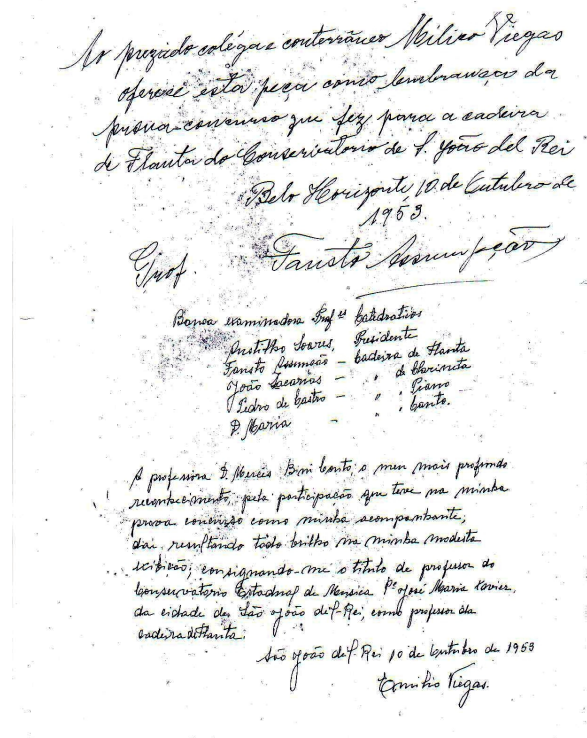 Ao prezado colega e conterrâneo Milico Viegas
oferece esta peça como lembrança da
prova-concurso que fez para a cadeira
de Flauta do Conservatorio de S. João del Rei
Belo Horizonte, 10 de Outubro de
1953.
Prof. Fausto Assumpção
Banca examinadora Prof.es Catedrativos
Soares, Presidente
Fausto Assunção - Cadeira de Flauta
João - " de Clarineta
Pedro de Castro - " " Piano
D. Maria - " " Canto.
A professora D. Mercês Bini Couto, o meu mais profundo
reconhecimento, pela participação que teve na minha
prova concurso como minha acompanhante,
daí resultando todo brilho na minha modesta
exibição, consignando-me o titulo de professor do
Conservatorio Estadual de Musica Pe José Maria Xavier,
da cidade de São João del-Rei, como professor da
cadeira de Flauta.
São João del-Rei 10 de Outubro de 1953
Emilio Viegas.